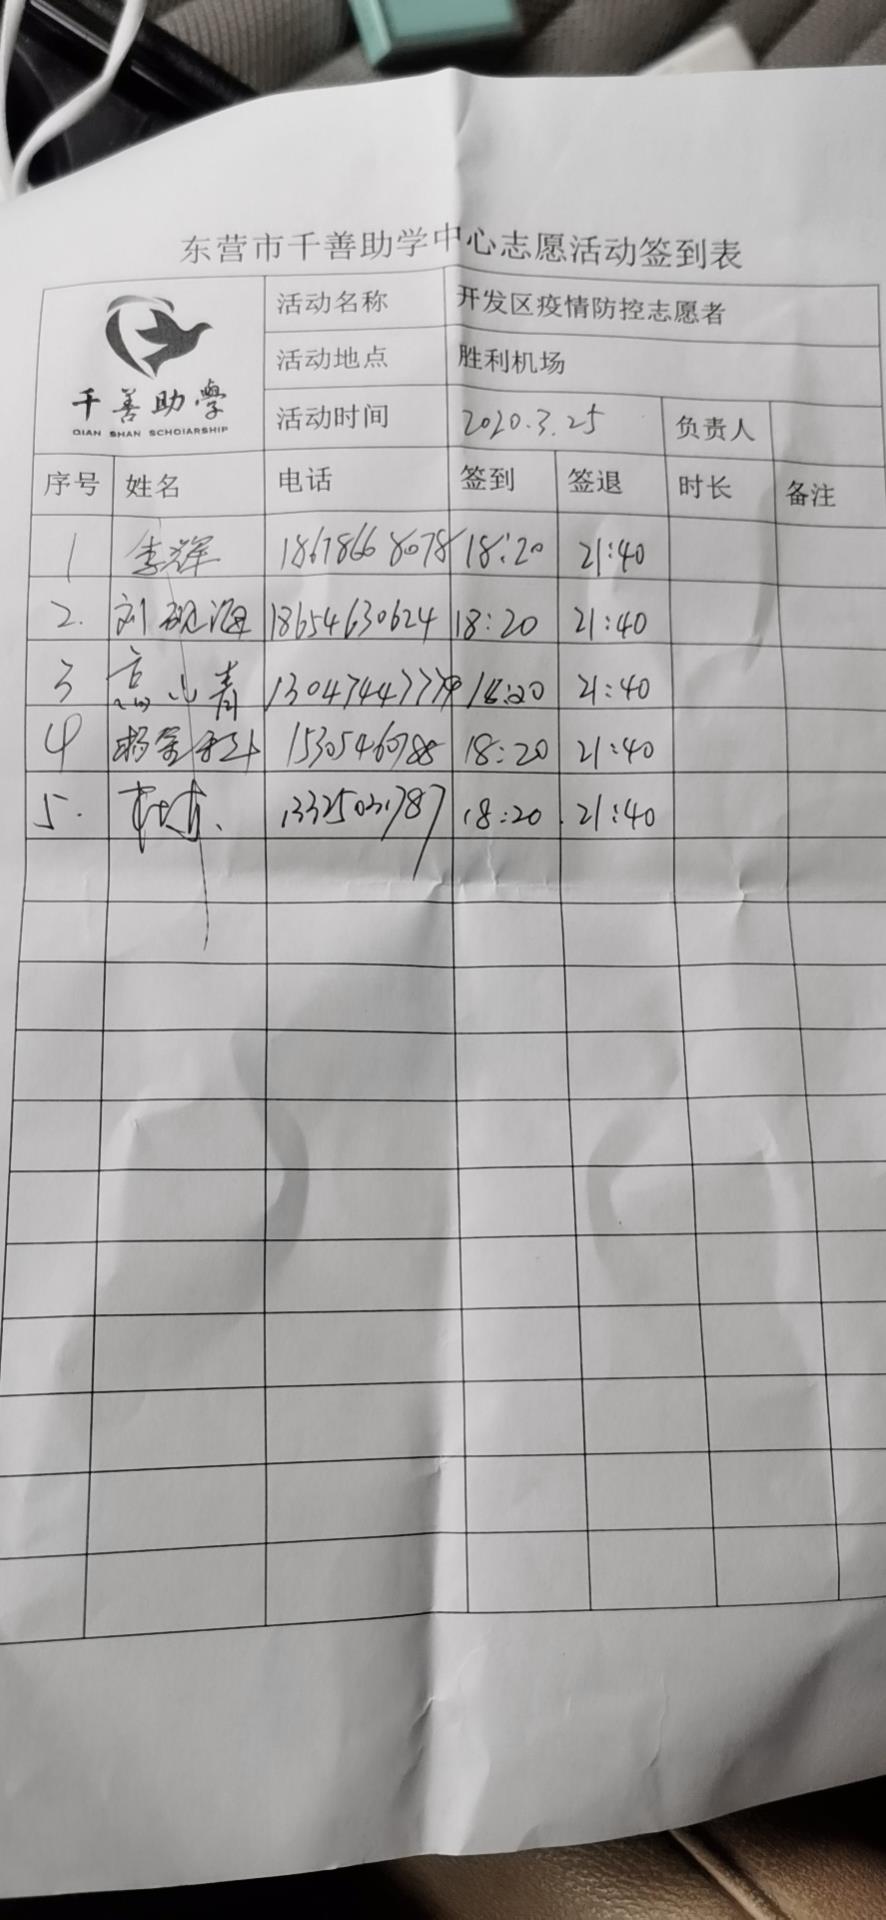 东营市千善助学中心志愿活动签到表
千善助學
QIAN SHAN SCHOIARSHIP
活动名称 开发区疫情防控志愿者
活动地点 胜利机场
活动时间 2020.3.25 负责人
序号 姓名 电话 签到 签退 时长 备注
1 李辉 18678668078 18:20 21:40
2. 刘砚海 18654630624 18:20 21:40
3 高小青 18:20 21:40
4 杨 15305460788 18:20 21:40
5. 18:20 21:40